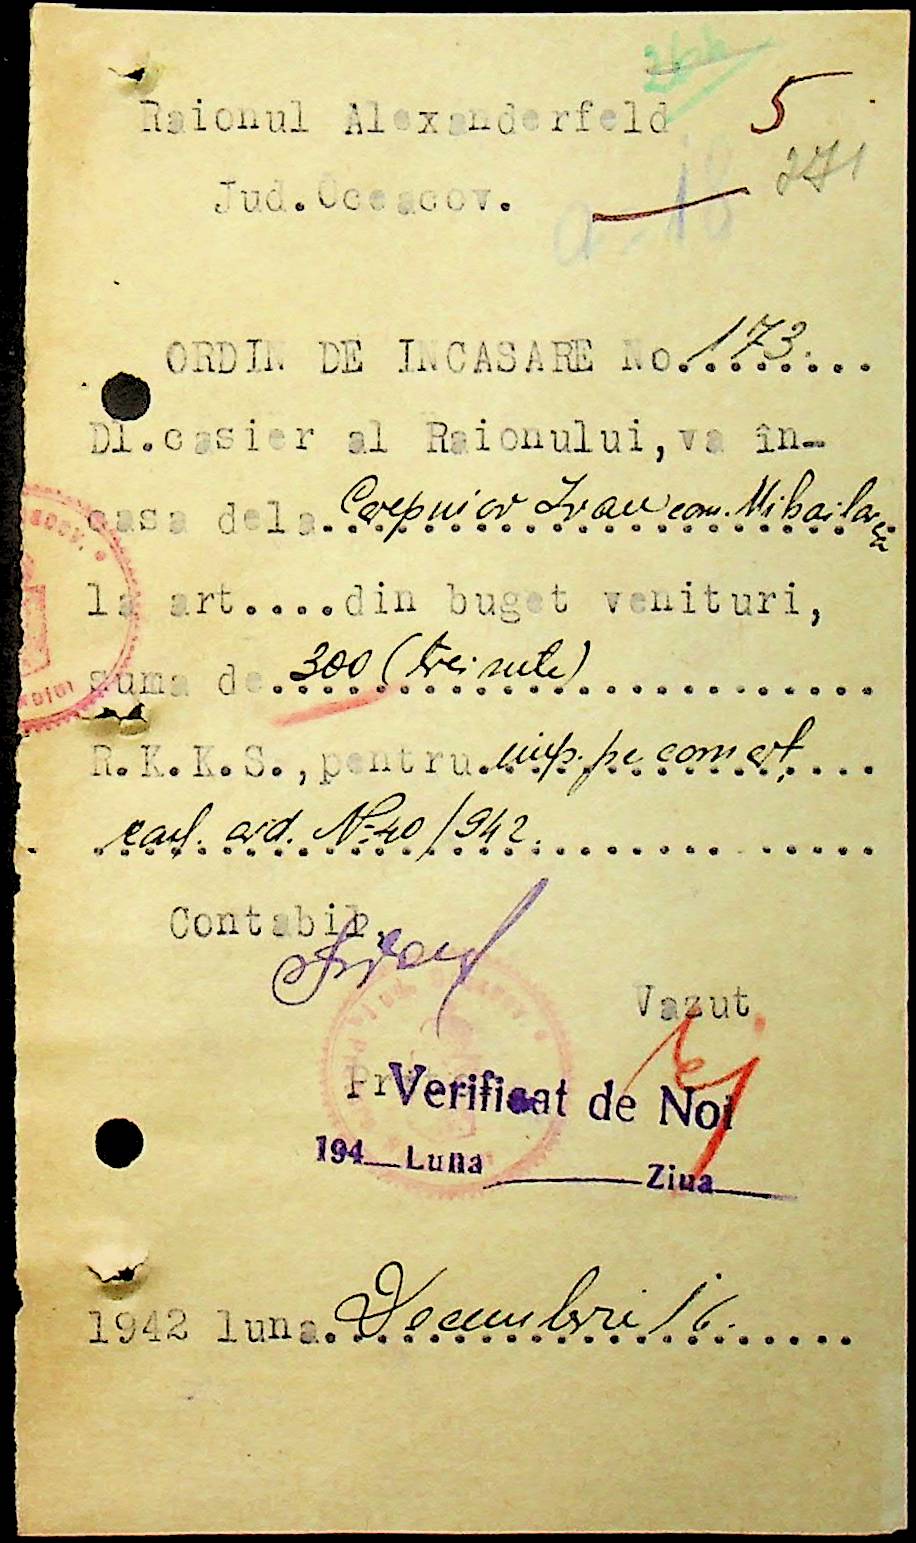 264
Raionul Alexanderfeld 5
271
Jud.Oceacov.
a-18
ORDIN DE INCASARE No.173.......
Dl.casier al Raionului,va în-
casa dela Cerpnior Ivan com. Mihailovca
la art....din buget venituri,
suma de 300 (trei sute)
R.K.K.S.,pentru imp. pe comerţ
conf. ord. No 40/942.
Contabil,
Vazut
Pr
Verificat de Noi
194 Luna Ziua
1942 luna Decembrie 16.